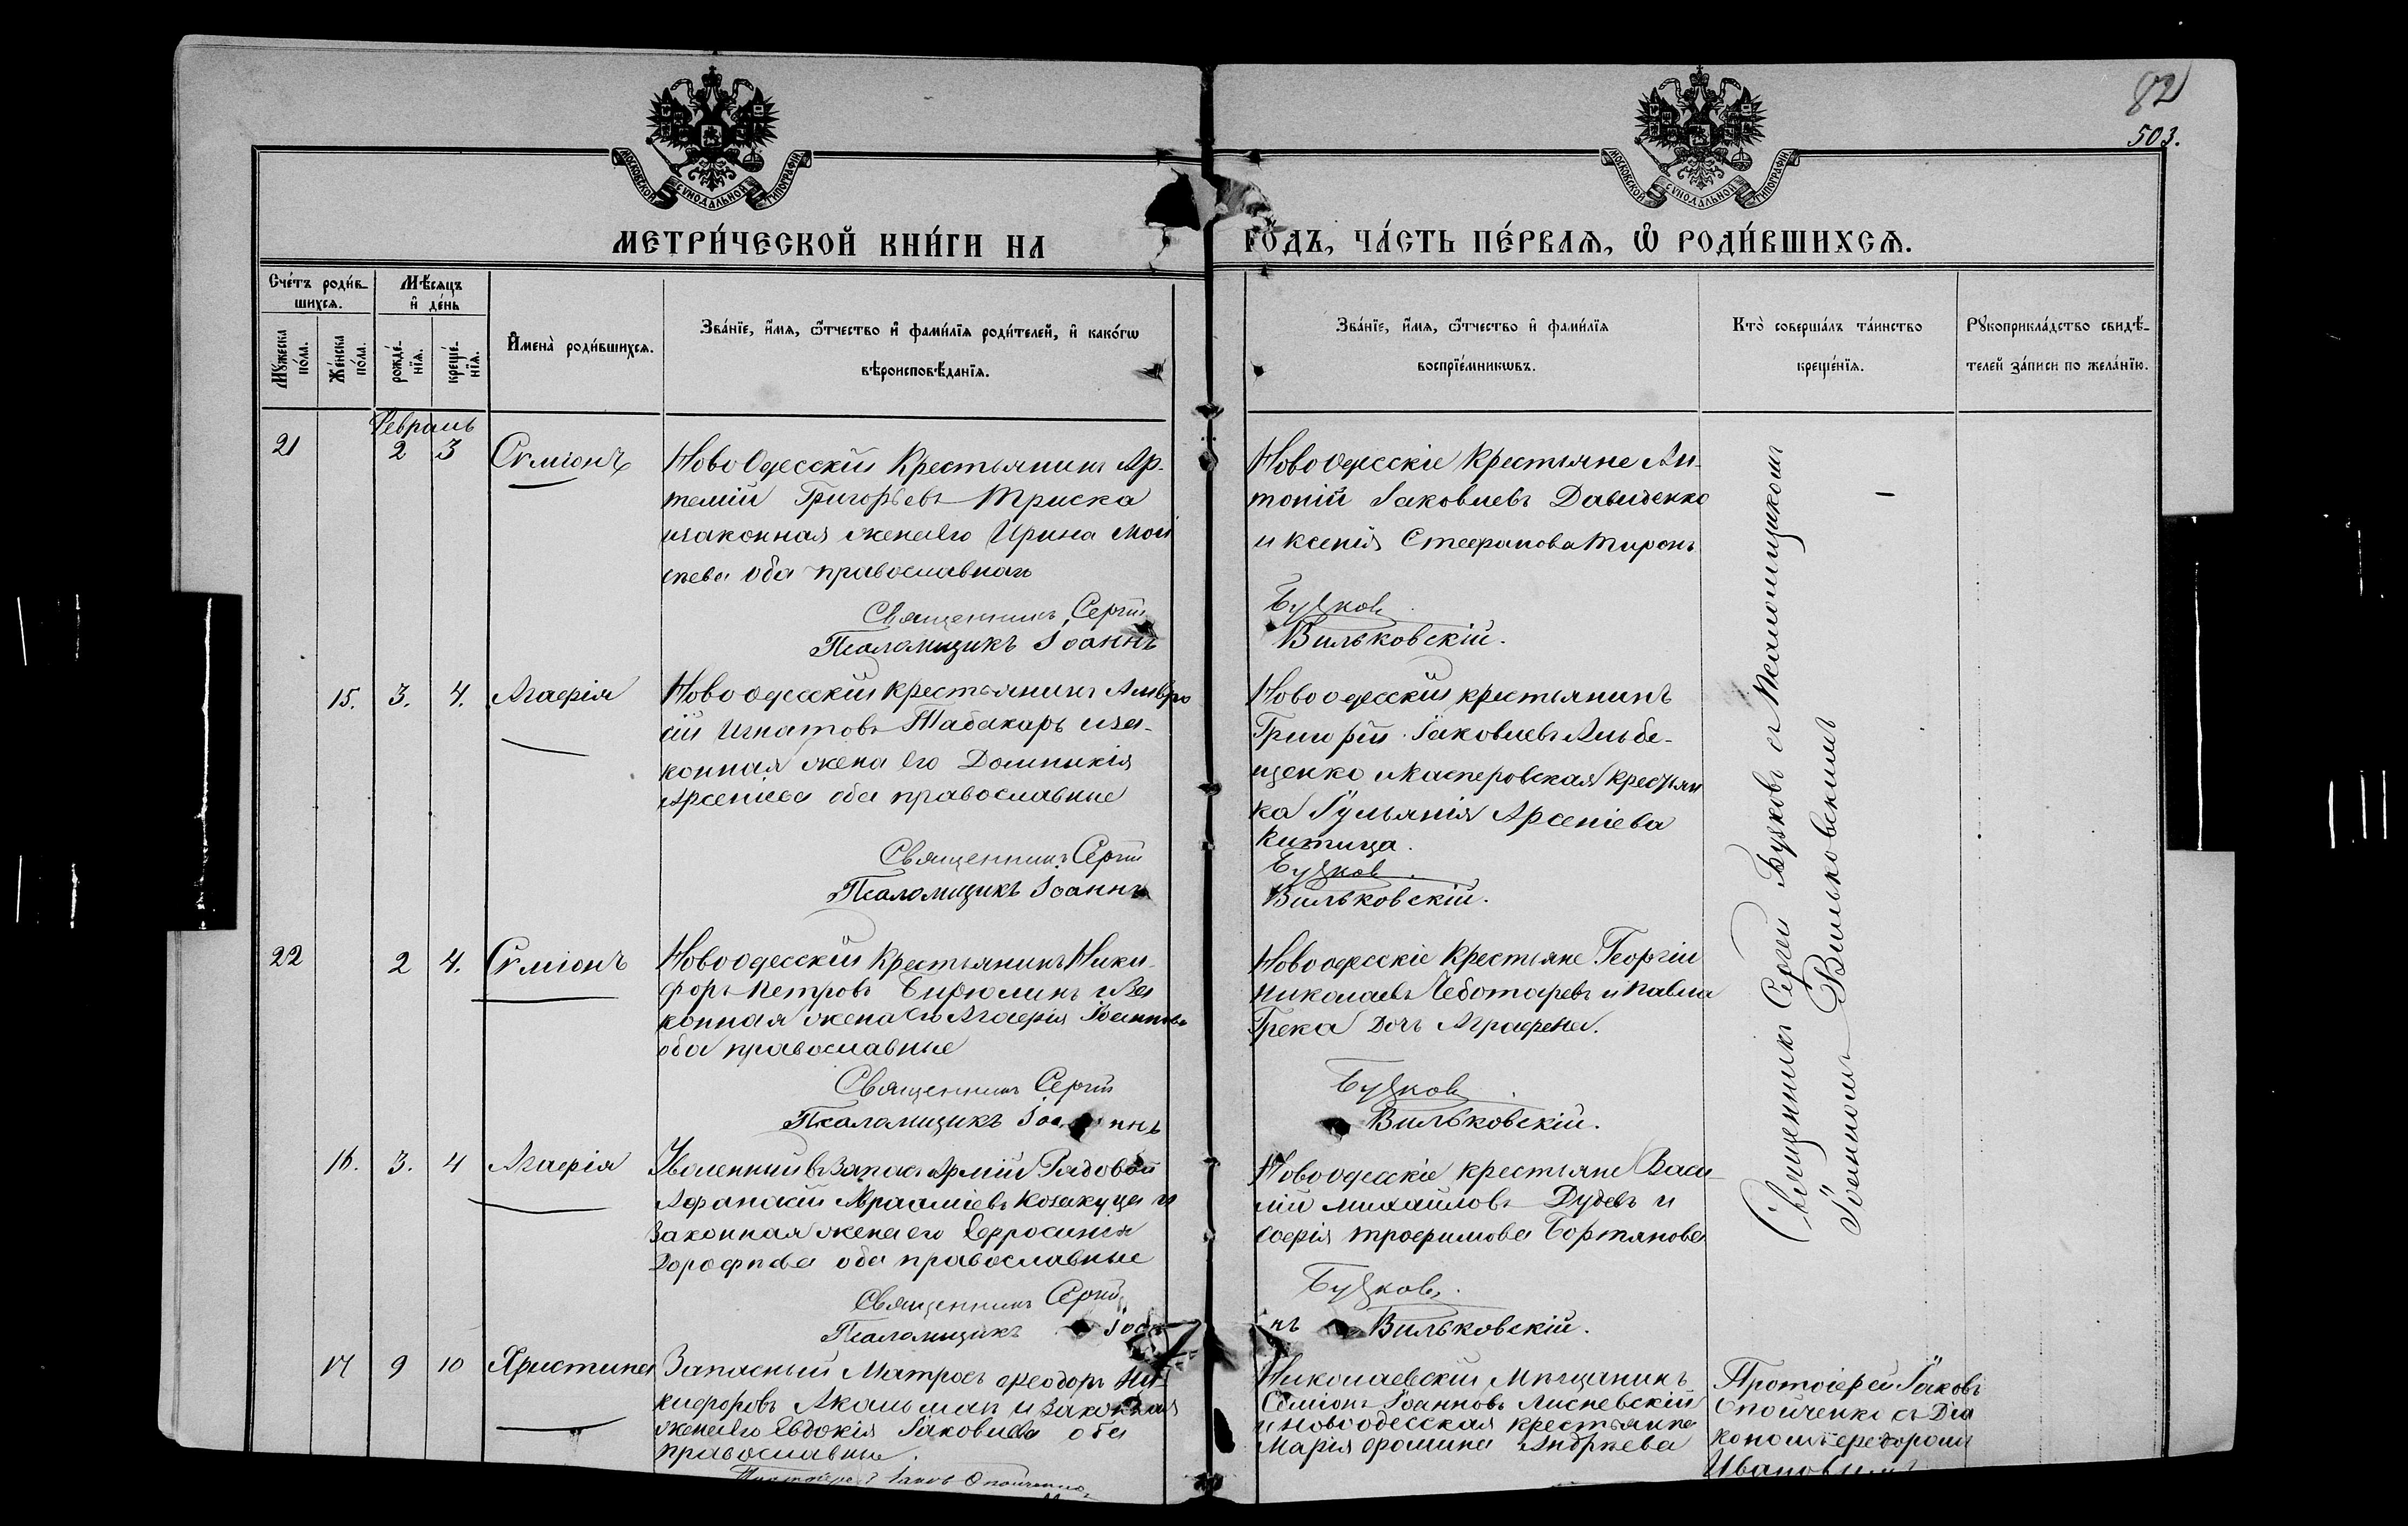 82
503.
МОСКОВСКОЙ СѴНОДАЛЬНОЙ ТИПОГРАФІИ
МОСКОВСКОЙ СѴНОДАЛЬНОЙ ТИПОГРАФІИ
МЕТРИ́ЧЕСКОЙ КНИ́ГИ НА ГО́ДЪ, ЧА́СТЬ ПЕ́РВАЯ, Ѡ РОДИ́ВШИХСЯ.
Сче́тъ роди́в-
шихся.
Мѣ́сяцъ
и де́нь
Мꙋ́жеска по́ла.
Же́нска по́ла.
рожде́-
нїя.
креще́-
нїя.
Имена̀ роди́вшихся.
Зва́нїе, и́мя, ѻ́тчество и фами́лїя роди́телей, и како́гѡ
вѣроисповѣ́данїя.
Зва́нїе, и́мя, ѻ́тчество и фами́лїя
воспрїе́мникѡвъ.
Кто̀ соверша́лъ та́инство
креще́нїя.
Рꙋкоприкла́дство свидѣ́-
телей за́писи по жела́нїю.
Февраль
21 2 3 Симіонъ
НовоОдесскій Крестьянинъ Ар-
темій Григорьевъ Триска
изаконная женаего Ирина Мои
сеева оба православная
Священникъ Сергій
Псаломщикъ Іоаннъ
Новоодесскіе Крестьяне Ан-
тоній Іаковлевъ Давиденко
и Ксенія Стефанова Миронъ
БуЦков
Вильковскій.
15. 3. 4. Агафія
Новоодесскій Крестьянинъ Амвро
сій Игнатовъ Табакаръ иза-
конная жена его Домникія
Арсеніева оба православные
Священникъ Сергій
Псаломщикъ Іоаннъ
Новоодесскій крестьянинъ
Григорій Іаковлевъ
щенко иКасперовская крестьян
ка Іуліанія Арсеніева
Китица.
Вильковскій.
22 2 4. Симіонъ
Новоодесскій Крестьянинъ Ники-
форъ Петровъ Бирюлинъ иЗа
конная жена его Агафія Іоаннова
оба православные
Священникъ Сергій
Псаломщикъ Іоаннъ
Новоодесскіе Крестьяне Георгій
Николаевъ Чеботаревъ и Павла
Грека дочь Аграфена.
Вильковскій.
16. 3. 4 Агафія
Уволенный въ Запасъ Арміи Рядовой
Афанасій Авраамієвъ Козакуца и
Законная жена его Евфросинія
Дорофеева оба православные
Священникъ Сергій
Псаломщикъ Іоаннъ
Новоодесскіе крестьяне Васи
лій Михайловъ Дудевъ и
Софія Трофимова Бортянова
Вильковскій.
Священникъ Сергей съ Псаломщикомъ
Іоанномъ Вильковскимъ
17 9 10 Христина
Запасный Матросъ Феодоръ Ни-
кифоровъ Акальманъ и Законная
женаего Евдокія Іаковлева оба
православные.
Протоіерей Іаковъ Опойченко
Николаевскій Мѣщанинъ
Симіонъ Іоанновъ Лисневскій
и новоодесская крестьянка
Марія Фомина Андреева
Протоіерей Іаковъ
Опойченко съ Діа
кономъ Феодоромъ
Ивановымъ